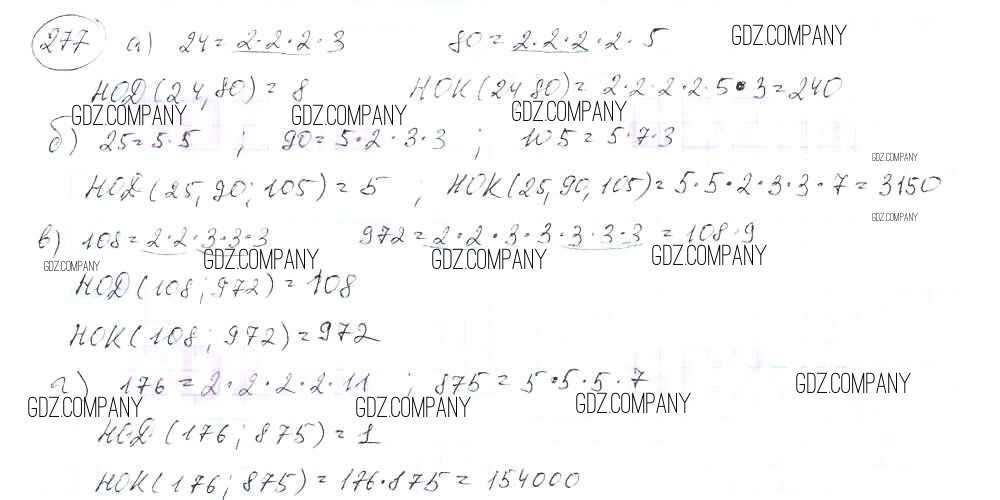 277 а) 24 = 2·2·2·3 80 = 2·2·2·2·5 GDZ.COMPANY
НОД(24,80) = 8 НОК(24 80) = 2·2·2·2·5·3 = 240
GDZ.COMPANY GDZ.COMPANY GDZ.COMPANY
б) 25 = 5·5 ; 90 = 5·2·3·3 ; 105 = 5·7·3
GDZ.COMPANY
НОД(25, 90; 105) = 5 ; НОК(25, 90, 105) = 5·5·2·3·3·7 = 3150
GDZ.COMPANY
в) 108 = 2·2·3·3·3 972 = 2·2·3·3·3·3·3 = 108·9
GDZ.COMPANY GDZ.COMPANY GDZ.COMPANY GDZ.COMPANY
НОД(108; 972) = 108
НОК(108; 972) = 972
г) 176 = 2·2·2·2·11 ; 875 = 5·5·5·7 GDZ.COMPANY
GDZ.COMPANY GDZ.COMPANY GDZ.COMPANY
НОД (176; 875) = 1
НОК(176; 875) = 176·875 = 154000